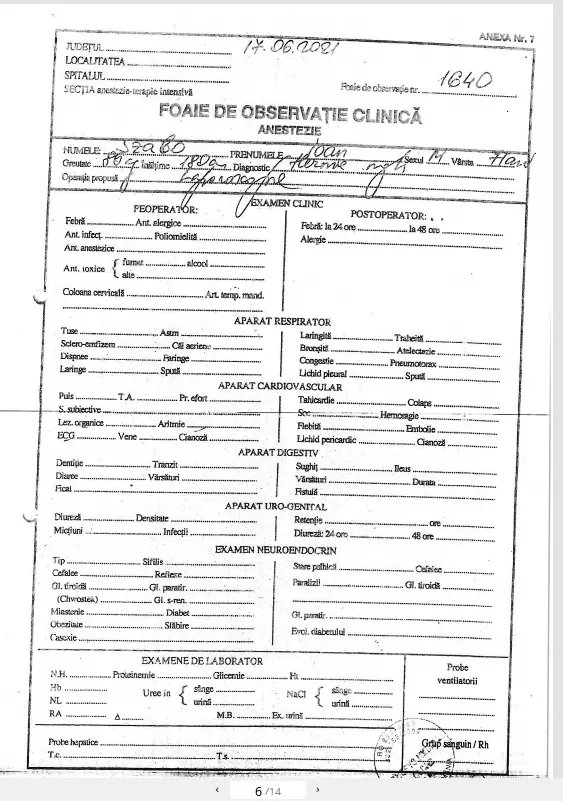 ANEXA Nr. 7
17.06.2021
JUDEȚUL
LOCALITATEA
SPITALUL
SECȚIA anestezie-terapie intensivă
Foaie de observație nr. 1640
FOAIE DE OBSERVAȚIE CLINICĂ
ANESTEZIE
NUMELE: Szabo PRENUMELE: Ioan Sexul M Vârsta
Greutate Înălțime Diagnostic
Operația propusă
EXAMEN CLINIC
PEOPERATOR: POSTOPERATOR:
Febră Ant. alergice Febră: la 24 ore la 48 ore
Ant. infecț. Poliomielită Alergie
Ant. anestezice
Ant. toxice { fumat alcool
alte
Coloana cervicală Art. temp. mand.
APARAT RESPIRATOR
Tuse Astm Laringită Traheită
Sclero-emfizem Căi aeriene Bronșită Atelectazie
Dispnee Faringe Congestie Pneumotorax
Laringe Spută Lichid pleural Spută
APARAT CARDIOVASCULAR
Puls T.A. Pr. efort Tahicardie Colaps
S. subiective Șoc Hemoragie
Lez. organice Aritmie Flebită Embolie
ECG Vene Cianoză Lichid pericardic Cianoză
APARAT DIGESTIV
Dentiție Tranzit Sughiț Ileus
Diaree Vărsături Vărsături Durata
Ficat Fistulă
APARAT URO-GENITAL
Diureză Densitate Retenție ore
Micțiuni Infecții Diureză: 24 ore 48 ore
EXAMEN NEUROENDOCRIN
Tip Sifilis Stare psihică Cefalee
Cefalee Reflexe Paralizii Gl. tiroidă
Gl. tiroidă Gl. paratir.
(Chwostek) Gl. s-ren.
Miastenie Diabet Gl. paratir.
Obezitate Slăbire Evol. diabetului
Casexie
EXAMENE DE LABORATOR
Probe ventilatorii
N.H. Proteinemie Glicemie Ht
Hb Uree în { sânge NaCl { sânge
NL urină urină
RA Δ M.B. Ex. urină
Probe hepatice Grup sanguin / Rh
T.c. T.s.
6 /14